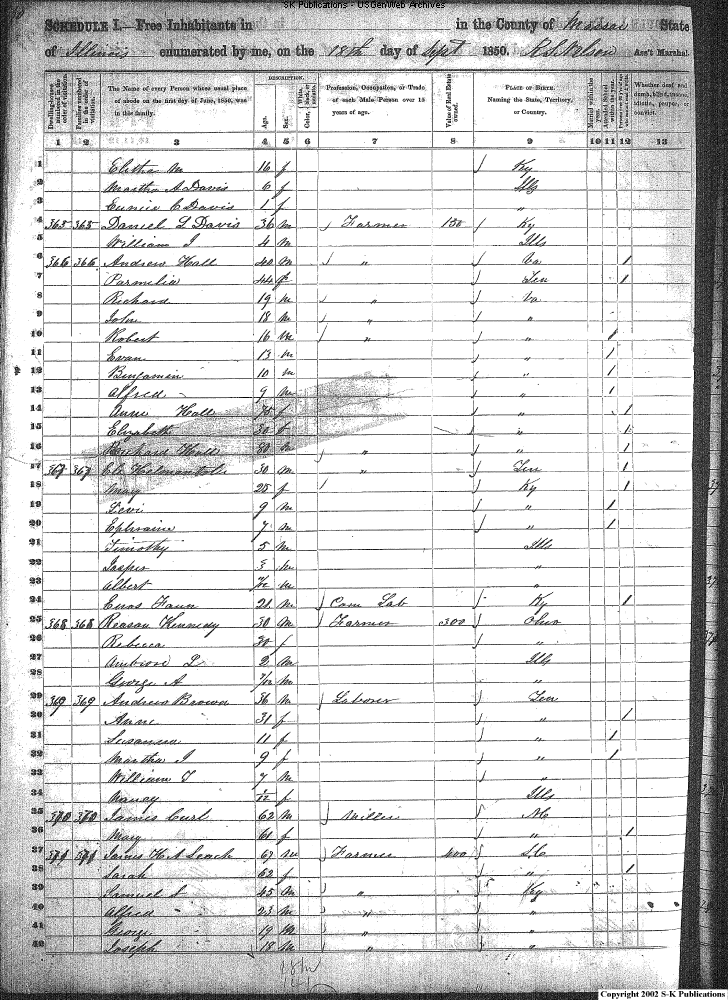 S-K Publications - USGenWeb Archives
SCHEDULE I.—Free Inhabitants in in the County of Massac State
of Illinois enumerated by me, on the 18th day of Sept 1850. Ass't Marshal.
DESCRIPTION.
Dwelling-houses numbered in the order of visitation. Families numbered in the order of visitation. The Name of every Person whose usual place of abode on the first day of June, 1850, was in this family. Age. Sex. Color, White, black, or mulatto. Profession, Occupation, or Trade of each Male Person over 15 years of age. Value of Real Estate owned. PLACE OF BIRTH. Naming the State, Territory, or Country. Married within the year. Attended School within the year. Whether deaf and dumb, blind, insane, idiotic, pauper, or convict.
1 2 3 4 5 6 7 8 9 10 11 12 13
1 M 16 f / Ky
2 Martha A Davis 6 f Ills
3 Eunice C Davis 1 f "
4 365 365 Daniel L Davis 36 m / Farmer 100 / Ky
5 William J 4 m Ills
6 366 366 Andrew Hall 40 m / " / Va /
7 Parmelia 44 f / Ten /
8 Richard 19 m / " / Va
9 John 18 m / " / "
10 Robert 16 m / " / " /
11 Evan 13 m / " /
12 Benjamin 10 m / " /
13 Alfred 9 m / " /
14 Anne Hall 75 f / " /
15 Elizabeth 30 f / " /
16 Richard Hall 80 m " / " /
17 367 367 30 m " / Ten /
18 Mary 25 f / / Ky /
19 Levi 9 m / " /
20 Ephraim 7 m / " /
21 Timothy 5 m Ills
22 Jasper 3 m "
23 Albert 7/12 m "
24 Enos 21 m / Com Lab / Ky /
25 368 368 Reason Kennedy 30 m / Farmer 300 / Ohio
26 Rebecca 30 f / "
27 2 m Ills
28 George A 7/12 m "
29 369 369 Andrew Brown 36 m / Laborer / Ten
30 Anne 31 f / " /
31 Susanna 11 f / " /
32 Martha J 9 f / " /
33 William T 7 m / "
34 Nancy 1/12 f Ills
35 370 370 James Curl 62 m / Miller / NC
36 Mary 61 f / " /
37 371 371 James H A Leach 67 m / Farmer 400 / SC
38 Sarah 62 f / " /
39 Samuel S 45 m / " / Ky
40 Alfred 23 m / " / "
41 George 19 m / " / "
42 Joseph 18 m / " / "
Copyright 2002 S-K Publications